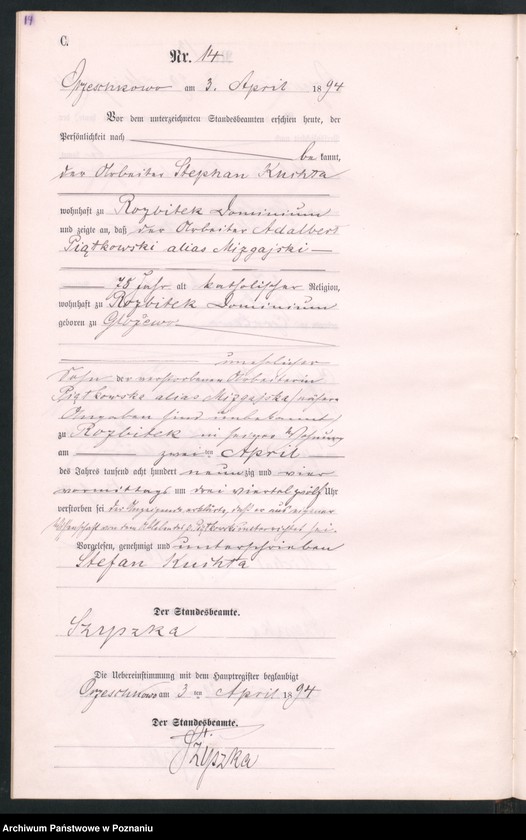 14
C.
Nr. 14
Orzeschkowo am 3. April 1894
Vor dem unterzeichneten Standesbeamten erschien heute, der
Persönlichkeit nach
bekannt,
der Arbeiter Stephan Kuchta
wohnhaft zu Rozbitek Dominium
und zeigte an, daß der Arbeiter Adalbert
Piątkowski alias Mizgajski
78 Jahr alt katholischer Religion,
wohnhaft zu Rozbitek Dominium
geboren zu
unehelicher
Sohn der verstorbenen Arbeiterin
Piątkowska alias Mizgajska, nähere
Angaben sind unbekannt
zu Rozbitek in seiner Wohnung
am zweiten April
des Jahres tausend acht hundert neunzig und vier
vormittags um drei viertel zwölf Uhr
verstorben sei der Anzeigende erklärte, daß er aus eigener
Wissenschaft von dem unterrichtet sei.
Vorgelesen, genehmigt und unterschrieben
Stefan Kuchta
Der Standesbeamte.
Szyszka
Die Uebereinstimmung mit dem Hauptregister beglaubigt
Orzeschkowo am 3ten April 1894
Der Standesbeamte.
Szyszka
Archiwum Państwowe w Poznaniu